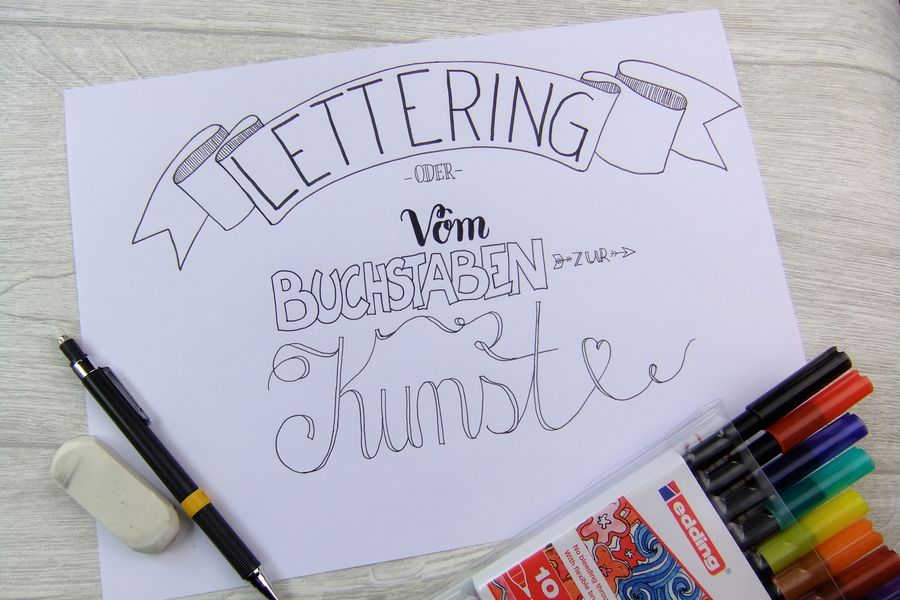 LETTERING
-ODER-
Vom
BUCHSTABEN ZUR
Kunst
edding
10
No bleeding throu
With flexible br